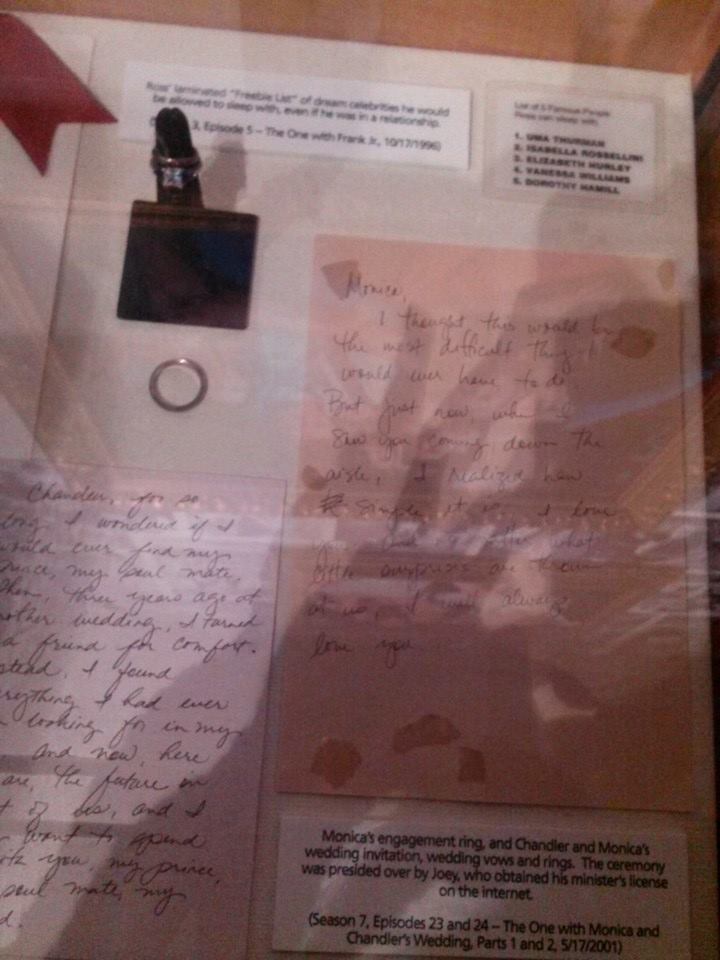 Ross' laminated "Freebie List" of dream celebrities he would
be allowed to sleep with, even if he was in a relationship.
3, Episode 5 – The One with Frank Jr., 10/17/1996)
List of 5 Famous People
Ross can sleep with
1. UMA THURMAN
2. ISABELLA ROSSELLINI
3. ELIZABETH HURLEY
4. VANESSA WILLIAMS
5. DOROTHY HAMILL
Monica,
I thought this would be
the most difficult thing I
would ever have to do.
But just now, when I
saw you coming down the
aisle, I realized how
simple it is. I love
you and no matter what
surprises are thrown
at us, I will always
love you.
Chandler, for so
long I wondered if I
would ever find my
prince, my soul mate.
Then, three years ago at
another wedding, I turned
a friend for comfort.
stead, I found
erything I had ever
looking for in my
and now, here
are, the future in
t of us, and I
want to spend
with you, my prince,
soul mate, my
d.
Monica's engagement ring, and Chandler and Monica's
wedding invitation, wedding vows and rings. The ceremony
was presided over by Joey, who obtained his minister's license
on the internet.
(Season 7, Episodes 23 and 24 – The One with Monica and
Chandler's Wedding, Parts 1 and 2, 5/17/2001)